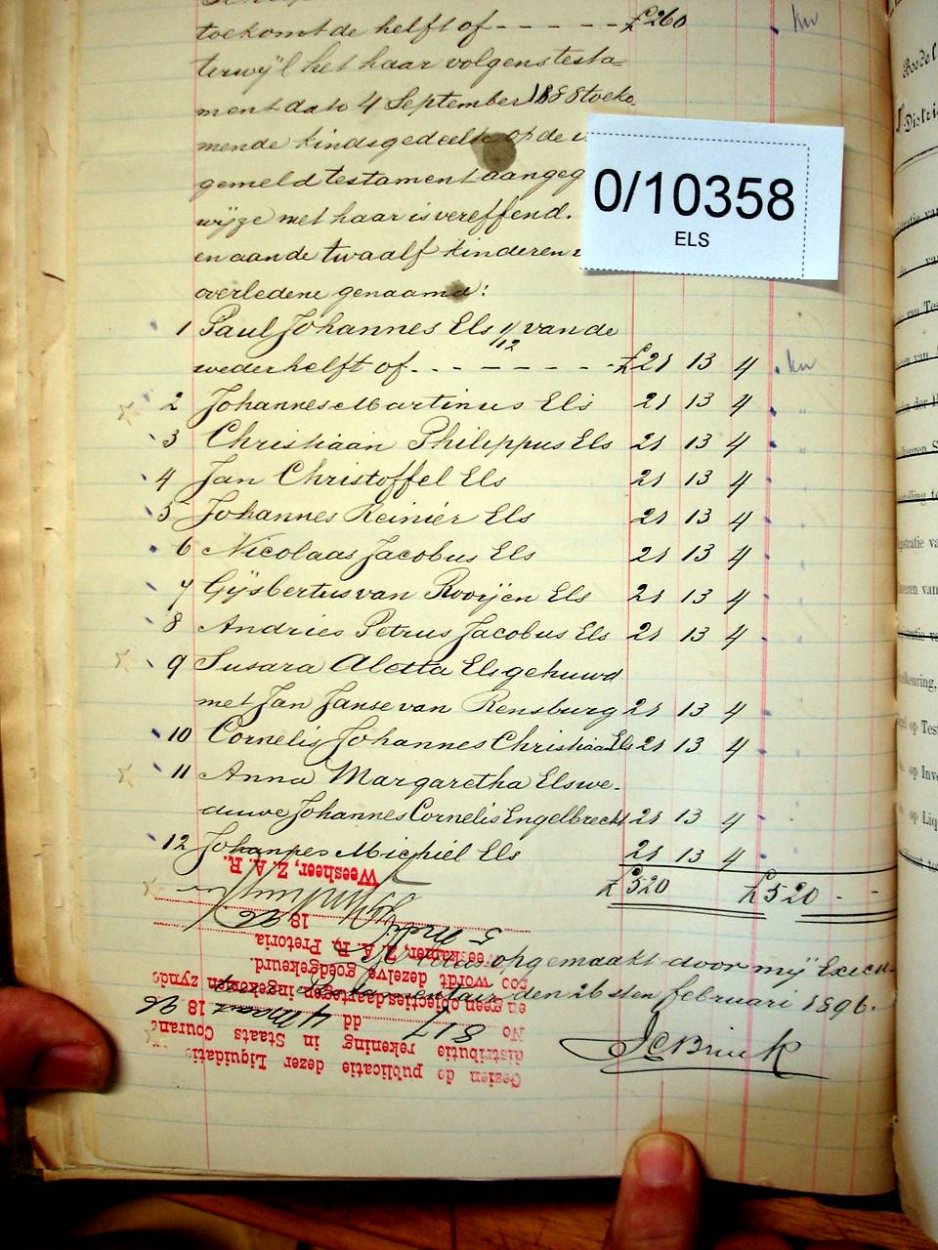 toekomt de helft of - - - - - - £260
terwijl het haar volgens testa=
ment dato 4 September 1888 toeko
mende kindsgedeelte op de
gemeld testament aangeg
wijze met haar is vereffend.
en aan de twaalf kinderen
overledene genaamd:
0/10358
ELS
1 Paul Johannes Els 1/12 van de
wederhelft of - - - - - - £21 13 4
2 Johannes Martinus Els 21 13 4
3 Christiaan Philippus Els 21 13 4
4 Jan Christoffel Els 21 13 4
5 Johannes Reinier Els 21 13 4
6 Nicolaas Jacobus Els 21 13 4
7 Gijsbertus van Rooijen Els 21 13 4
8 Andries Petrus Jacobus Els 21 13 4
9 Susara Aletta Els gehuwd
met Jan Janse van Rensburg 21 13 4
10 Cornelis Johannes Christiaan Els 21 13 4
11 Anna Margaretha Els we-
duwe Johannes Cornelis Engelbrecht 21 13 4
12 Johannes Michiel Els 21 13 4
£520 £520 - -
opgemaakt door mij Execu-
den 26sten februari 1896.
JC Brink
Gezien de publicatie dezer Liquidatie
distributie rekening in Staats Courant
No 817 dd 4 Maart 1896
en geen objecties daartegen ingekomen zynde
zoo wordt dezelve goedgekeurd.
Weeskamer, Z. A. R. Pretoria
5 1896
Weesheer, Z. A. R.